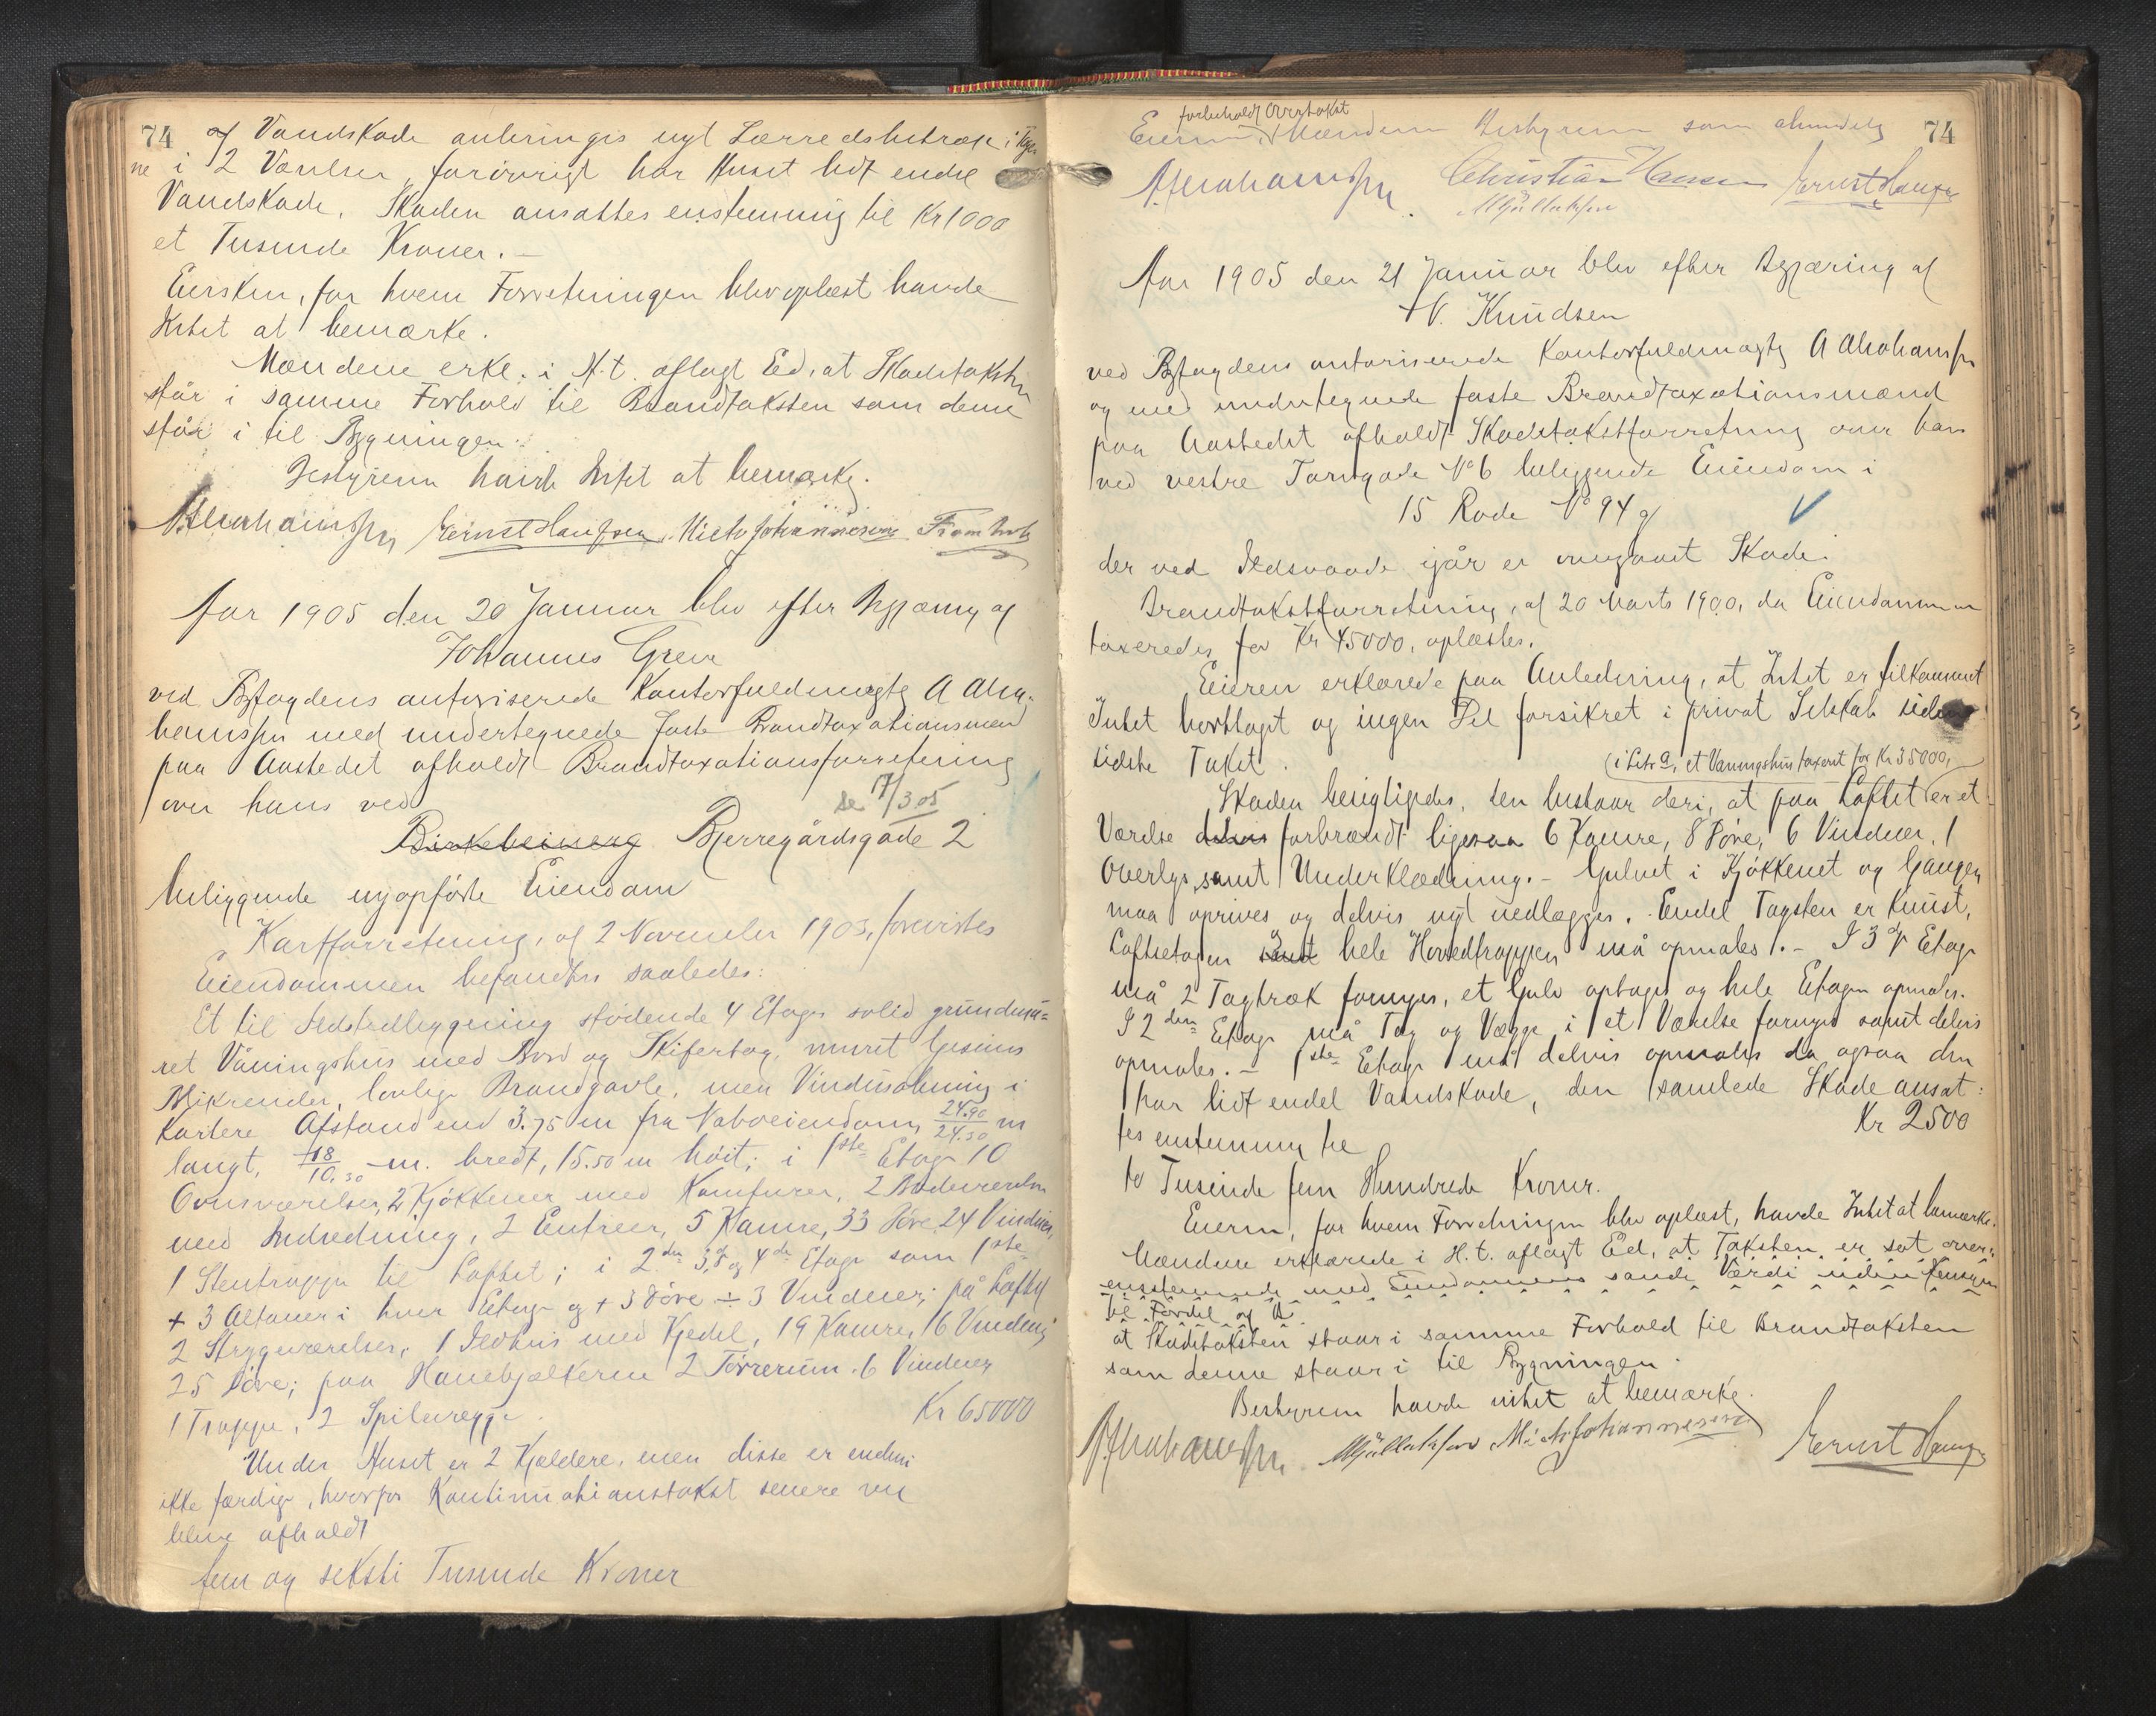 74 af Vandskade anbringes nyt Lærredsbetræk i
ne i 2 Værelser, forövrigt har Huset lidt endel
Vandskade. Skaden ansattes enstemmig til Kr 1000
et Tusinde Kroner.-
Eiersken, for hvem Forretningen blev oplæst havde
Intet at bemærke.
Mændene erkl. i H.t. aflagt Ed, at Skadetaksten
står i samme Forhold til Brandtaksten som denne
står i til Bygningen.
Bestyreren havde Intet at bemærke.
A Abrahamssen Ernst Hanssen Mich Johannesen
Aar 1905 den 20 Januar blev efter Begjæring af
Johannes Greve
ved Byfogdens autoriserede Kontorfuldmægtig A Abra-
hamssen med undertegnede faste Brandtaxationsmænd
paa Aastedet afholdt Brandtaxationsforretning
over hans ved
se 17/3 05
Birkebeinerg Bjerregårdsgade 2
beliggende nyopförte Eiendom
Kartforretning, af 2 November 1903, forevistes
Eiendommen befandtes saaledes:
Et til Ildstedbygning stödende 4 Etages solid grundmu=
ret Våningshus med Bord og Skifertag, muret Gesims
Mikrender, lovlige Brandgavle, men Vindusåbning i
kortere Afstand end 3.75 m fra Naboeiendom, 24.90/24.30 m
langt, 18/10.30 m. bredt, 15.50 m höit; i 1ste Etage 10
Ovnsværelser, 2 Kjökkener med Komfurer, 2 Badeværelser
med Indredning, 2 Entreer, 5 Kamre, 33 Döre 24 Vinduer,
1 Stentrappe til Loftet; i 2den 3die og 4de Etage som 1ste
+ 3 Altaner i hver Etage og + 3 Döre ÷ 3 Vinduer; på Loftet
2 Strygeværelser, 1 Ildhus med Kjedel, 19 Kamre, 16 Vinduer,
25 Döre; paa Hanebjælkerne 2 Törrerum 6 Vinduer
1 Trappe, 2 Spilevægge. Kr 65000
Under Huset er 2 Kjældere, men disse er endnu
ikke færdige, hvorfor Kontinuationstakst senere vil
blive afholdt
fem og seksti Tusinde Kroner
forbeholdt Overtakst
Eieren, Mændene Bestyreren som almindelig 74
A Abrahamssen Christian Hansen Ernst Hanssen
Aar 1905 den 21 Januar blev efter Begjæring af
N. Knudsen
ved Byfogdens autoriserede Kontorfuldmægtig A Abrahamssen
og med undertegnede faste Brandtaxationsmænd
paa Aastedet afholdt Skadetakstforretning over hans
ved vestre Torvgade No 6 beliggende Eiendom i
15 Rode No 94 g
der ved Ildsvaade igår er overgaaet Skade.
Brandtakstforretning, af 20 Marts 1900, da Eiendommen
taxeredes for Kr 45000, oplæstes.
Eieren erklærede paa Anledning, at Intet er tilkommet
Intet borttaget og ingen Del forsikret i privat Selskab siden
sidste Takst.
(i Litr a, et Vaaningshus taxeret for Kr 35000,
Skaden besigtigedes, den bestaar deri, at paa Loftet er et
Værelse delvis forbrændt ligesaa 6 Kamre, 8 Döre, 6 Vinduer, 1
Overlys, samt Underklædning.- Gulvet i Kjøkkenet og Gangen
maa oprives og delvis nyt nedlægges. Endel Tagsten er knust,
Loftsetagen samt hele Hovedtrappen må opmales.- I 3die Etage
må 2 Tagtræk fornyes, et Gulv optages og hele Etagen opmales.
I 2den Etage må Tag og Vægge i et Værelse fornyes samt delvis
opmales.- 1ste Etage må delvis opmales da ogsaa den
har lidt endel Vandskade, den samlede Skade ansat:
tes enstemmig til Kr 2500
to Tusinde fem Hundrede Kroner.
Eieren, for hvem Forretningen blev oplæst, havde Intet at bemærke.
Mændene erklærede i H.t. aflagt Ed, at Taksten er sat over:
ensstemmende med Eiendommens sande Værdi uden Hensyn
til Fordel og
at Skadetaksten staar i samme Forhold til Brandtaksten
som denne staar i til Bygningen.
Bestyreren havde intet at bemærke.
A Abrahamssen Mich Johannesen Ernst Hanssen